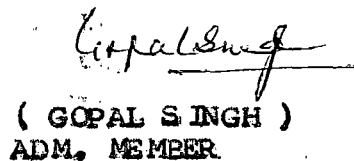 Gopal Singh
( GOPAL SINGH )
ADM. MEMBER